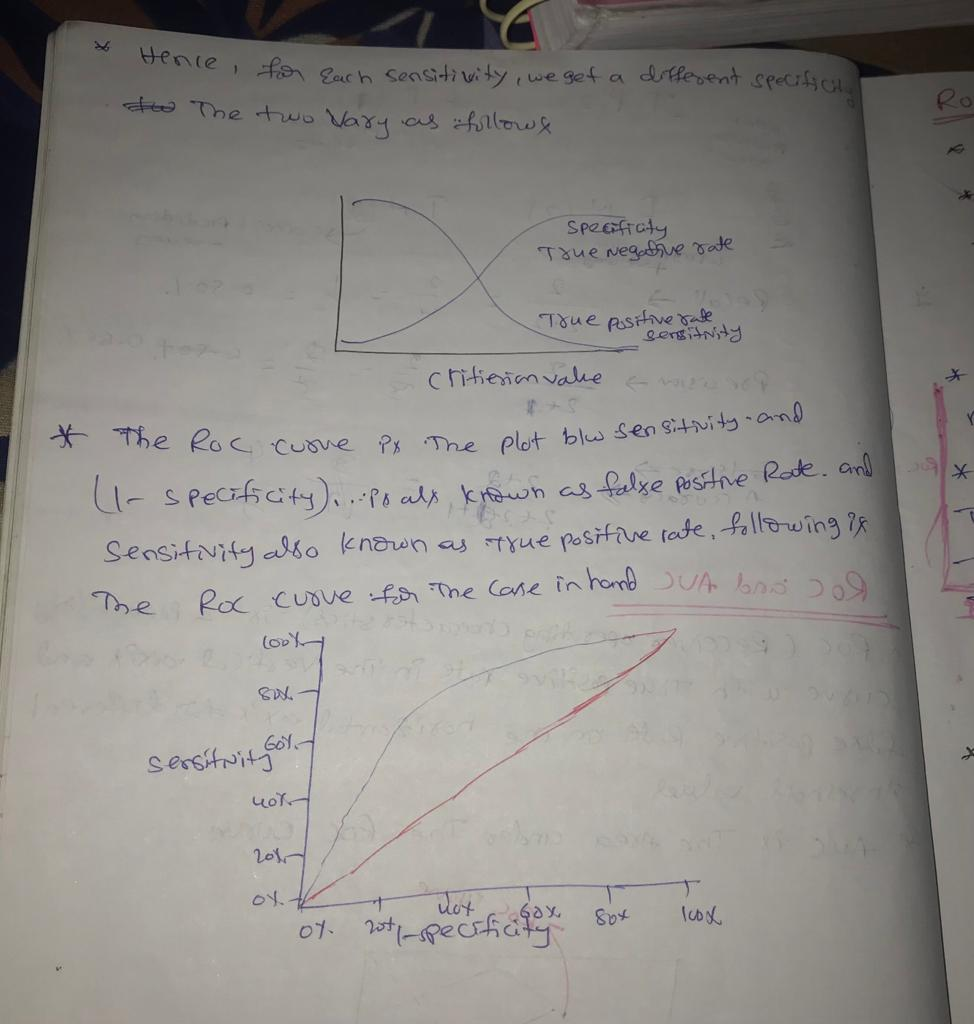 * Hence, for Each sensitivity, we get a different specificity
The two vary as follows
Specificity
True negative rate
True positive rate
sensitivity
Critierian value
* The ROC curve is The plot b/w sensitivity and
(1- specificity)... is als known as false positive Rate. and
Sensitivity also known as True positive rate, following is
The ROC curve for The Case in hand
100%
80%
60%
Sensitivity
40%
20%
0%
0% 20% 40% 60% 80% 100%
1-specificity
Ro
*
*
*